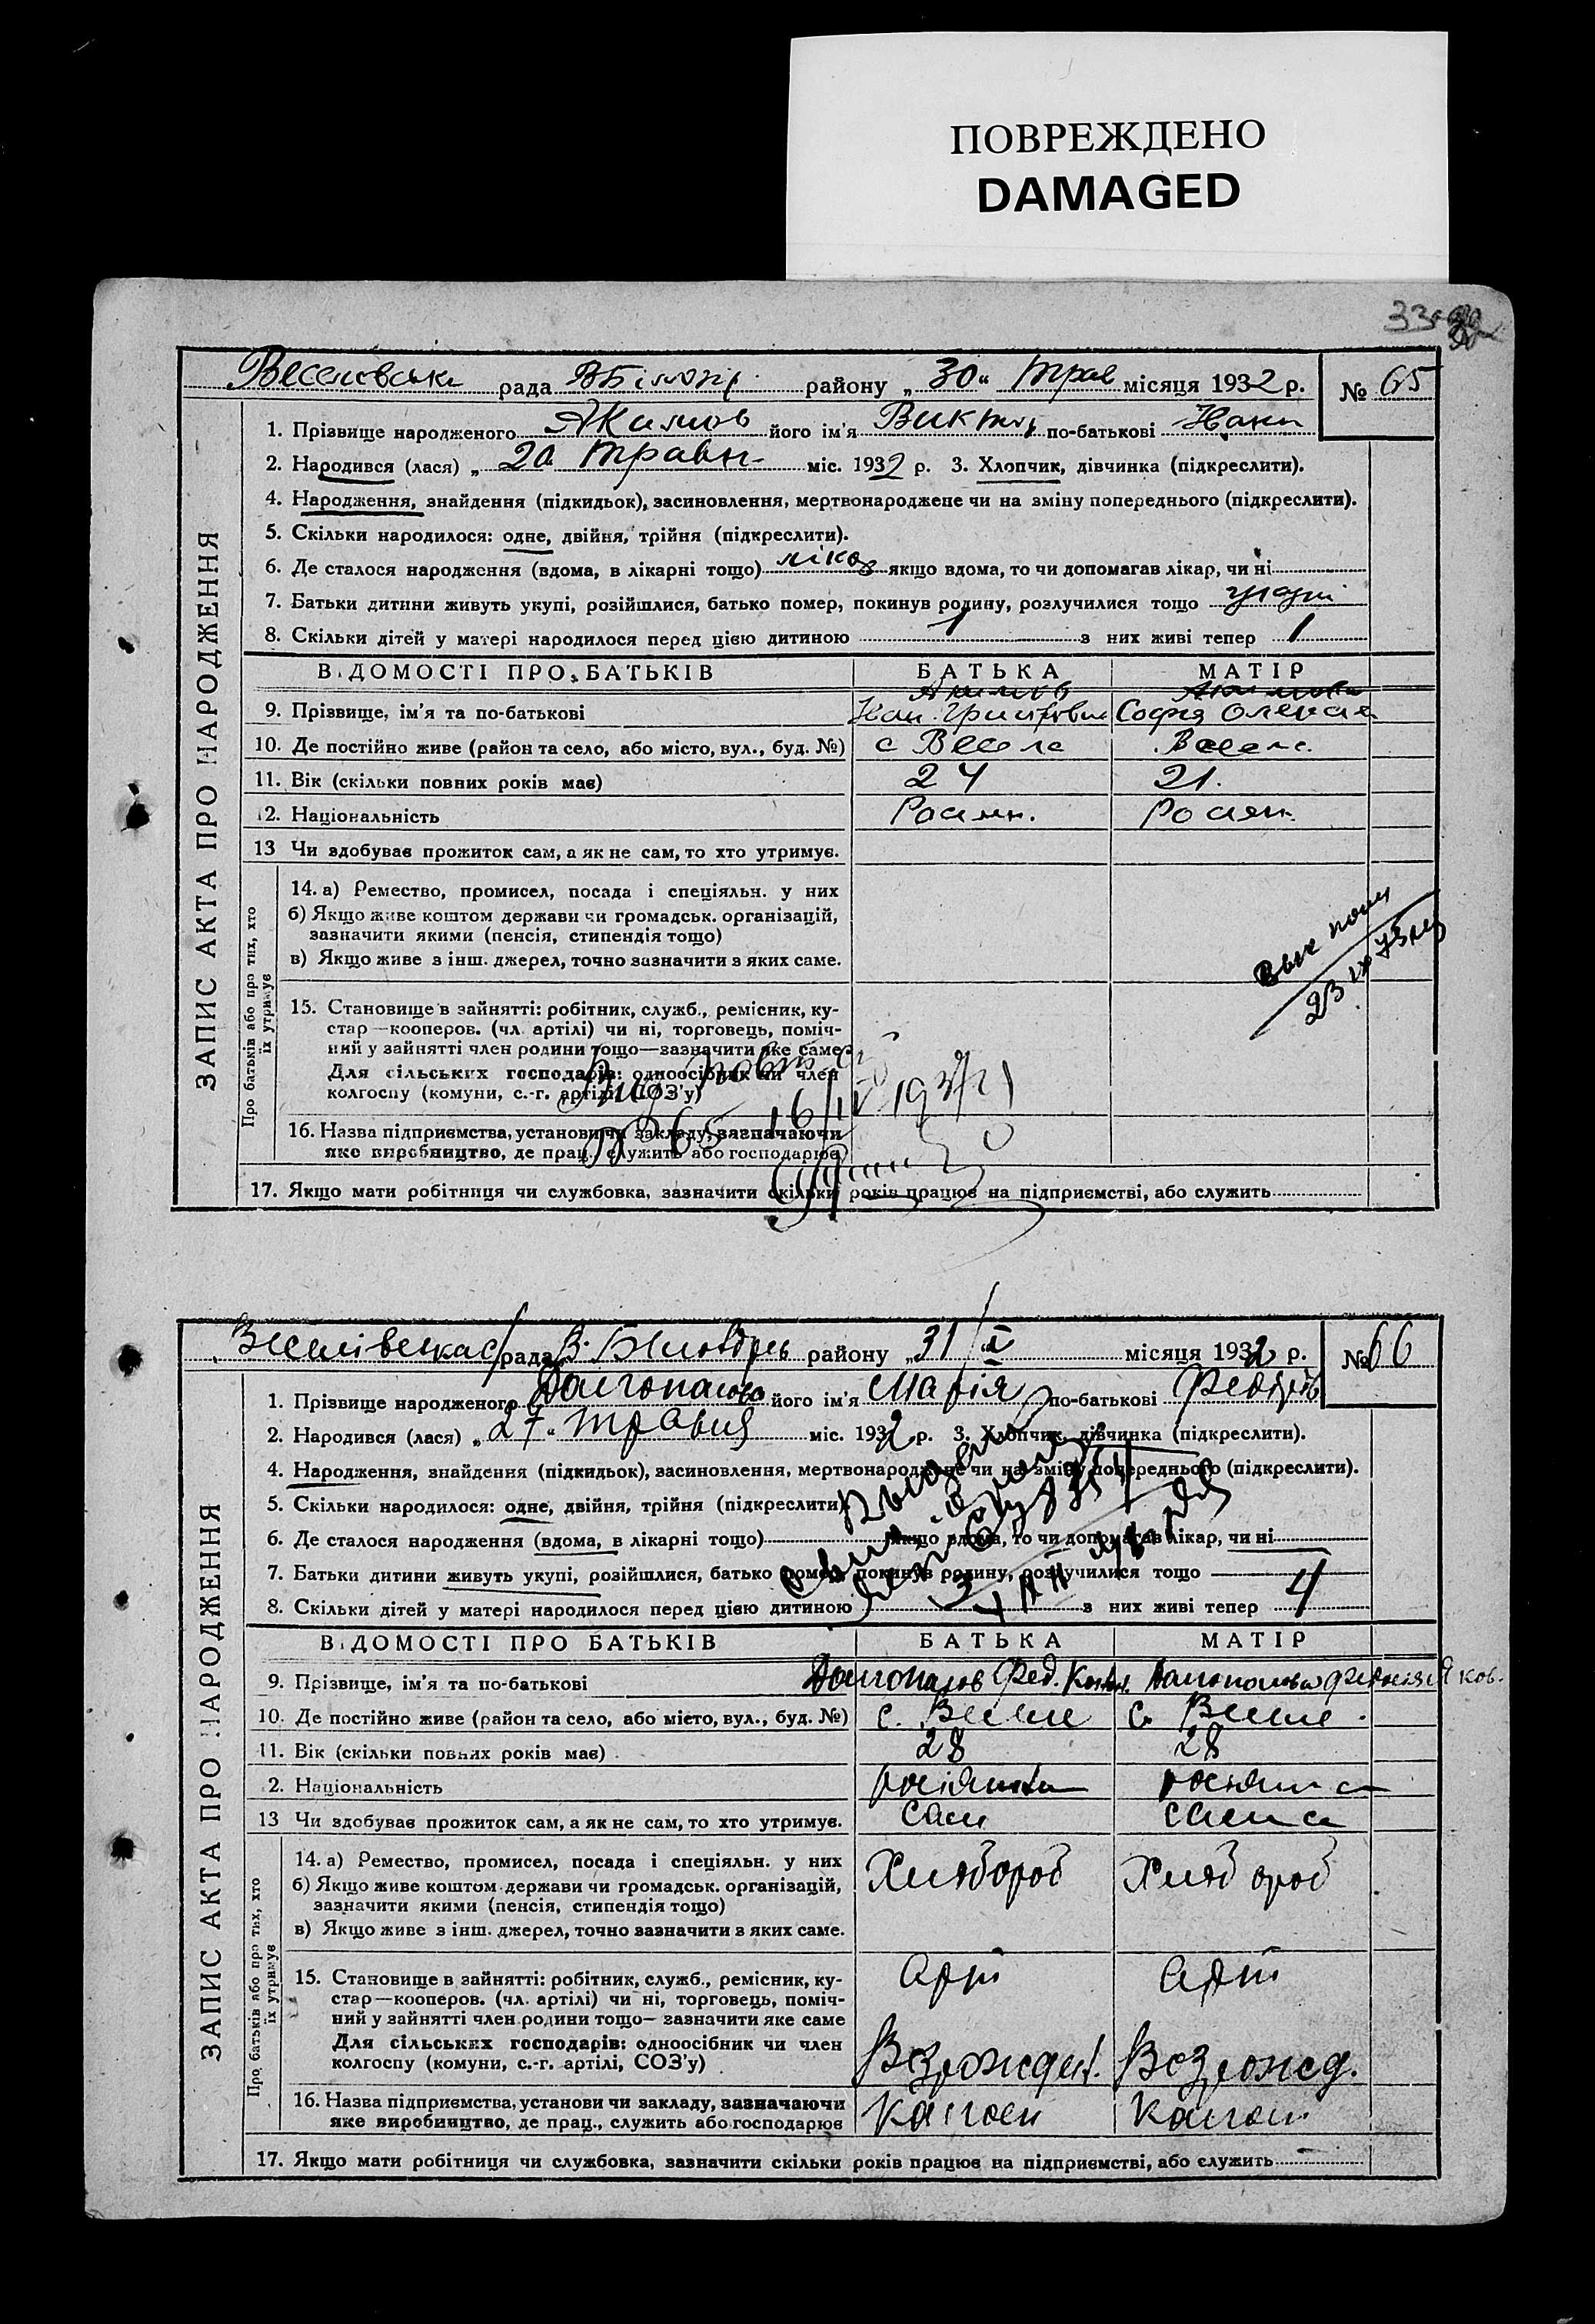 ПОВРЕЖДЕНО
DAMAGED
Веселовська рада В Білозір району „30“ трав місяця 1932 р. № 65
ЗАПИС АКТА ПРО НАРОДЖЕННЯ
1. Прізвище народженого Якимов його ім'я Виктор по-батькові Іване
2. Народився (лася) „20 травн міс. 1932 р. 3. Хлопчик, дівчинка (підкреслити).
4. Народження, знайдення (підкидьок), засиновлення, мертвонароджене чи на зміну попереднього (підкреслити).
5. Скільки народилося: одне, двійня, трійня (підкреслити).
6. Де сталося народження (вдома, в лікарні тощо) лікар якщо вдома, то чи допомагав лікар, чи ні
7. Батьки дитини живуть укупі, розійшлися, батько помер, покинув родину, розлучилися тощо
8. Скільки дітей у матері народилося перед цією дитиною 1 з них живі тепер 1
ВІДОМОСТІ ПРО БАТЬКІВ БАТЬКА МАТІР
Якимов Якимова
9. Прізвище, ім'я та по-батькові Іван Григорович Софія Олексія
10. Де постійно живе (район та село, або місто, вул., буд. №) с Весела Весела
11. Вік (скільки повних років має) 24 21.
12. Національність Росиян. Росиян.
13 Чи здобуває прожиток сам, а як не сам, то хто утримує.
Про батьків або про тих, хто їх утримує
14. а) Ремество, промисел, посада і спеціяльн. у них
б) Якщо живе коштом держави чи громадськ. організацій,
зазначити якими (пенсія, стипендія тощо)
в) Якщо живе з інш. джерел, точно зазначити з яких саме.
15. Становище в зайнятті: робітник, служб., ремісник, ку-
стар—кооперов. (чл. артілі) чи ні, торговець, поміч-
ний у зайнятті член родини тощо—зазначити яке саме
Для сільських господарів: одноосібник чи член
колгоспу (комуни, с.-г. артілі, СОЗ'у)
16. Назва підприємства, установи чи закладу, зазначаючи
яке виробництво, де прац., служить або господарює
17. Якщо мати робітниця чи службовка, зазначити скільки років працює на підприємстві, або служить
Веселівська с/рада В. Білозір району „31/V місяця 1932 р. № 66
ЗАПИС АКТА ПРО НАРОДЖЕННЯ
1. Прізвище народженого Долгопалова його ім'я Марія по-батькові Федорів
2. Народився (лася) „27“ травня міс. 1932 р. 3. Хлопчик, дівчинка (підкреслити).
4. Народження, знайдення (підкидьок), засиновлення, мертвонароджене чи на зміну попереднього (підкреслити).
5. Скільки народилося: одне, двійня, трійня (підкреслити)
6. Де сталося народження (вдома, в лікарні тощо) якщо вдома, то чи допомагав лікар, чи ні
7. Батьки дитини живуть укупі, розійшлися, батько помер, покинув родину, розлучилися тощо
8. Скільки дітей у матері народилося перед цією дитиною з них живі тепер 4
ВІДОМОСТІ ПРО БАТЬКІВ БАТЬКА МАТІР
9. Прізвище, ім'я та по-батькові Долгопалов Фед. Долгопалова
10. Де постійно живе (район та село, або місто, вул., буд. №) с. Веселе с. Веселе
11. Вік (скільки повних років має) 28 28
12. Національність росіянин росіянка
13 Чи здобуває прожиток сам, а як не сам, то хто утримує. сам сама
Про батьків або про тих, хто їх утримує
14. а) Ремество, промисел, посада і спеціяльн. у них Хлібороб Хлібороб
б) Якщо живе коштом держави чи громадськ. організацій,
зазначити якими (пенсія, стипендія тощо)
в) Якщо живе з інш. джерел, точно зазначити з яких саме.
15. Становище в зайнятті: робітник, служб., ремісник, ку- Арт Арт
стар—кооперов. (чл. артілі) чи ні, торговець, поміч-
ний у зайнятті член родини тощо— зазначити яке саме
Для сільських господарів: одноосібник чи член
колгоспу (комуни, с.-г. артілі, СОЗ'у) Возрожден. Возрожд.
16. Назва підприємства, установи чи закладу, зазначаючи
яке виробництво, де прац., служить або господарює Калгосп Калгосп
17. Якщо мати робітниця чи службовка, зазначити скільки років працює на підприємстві, або служить